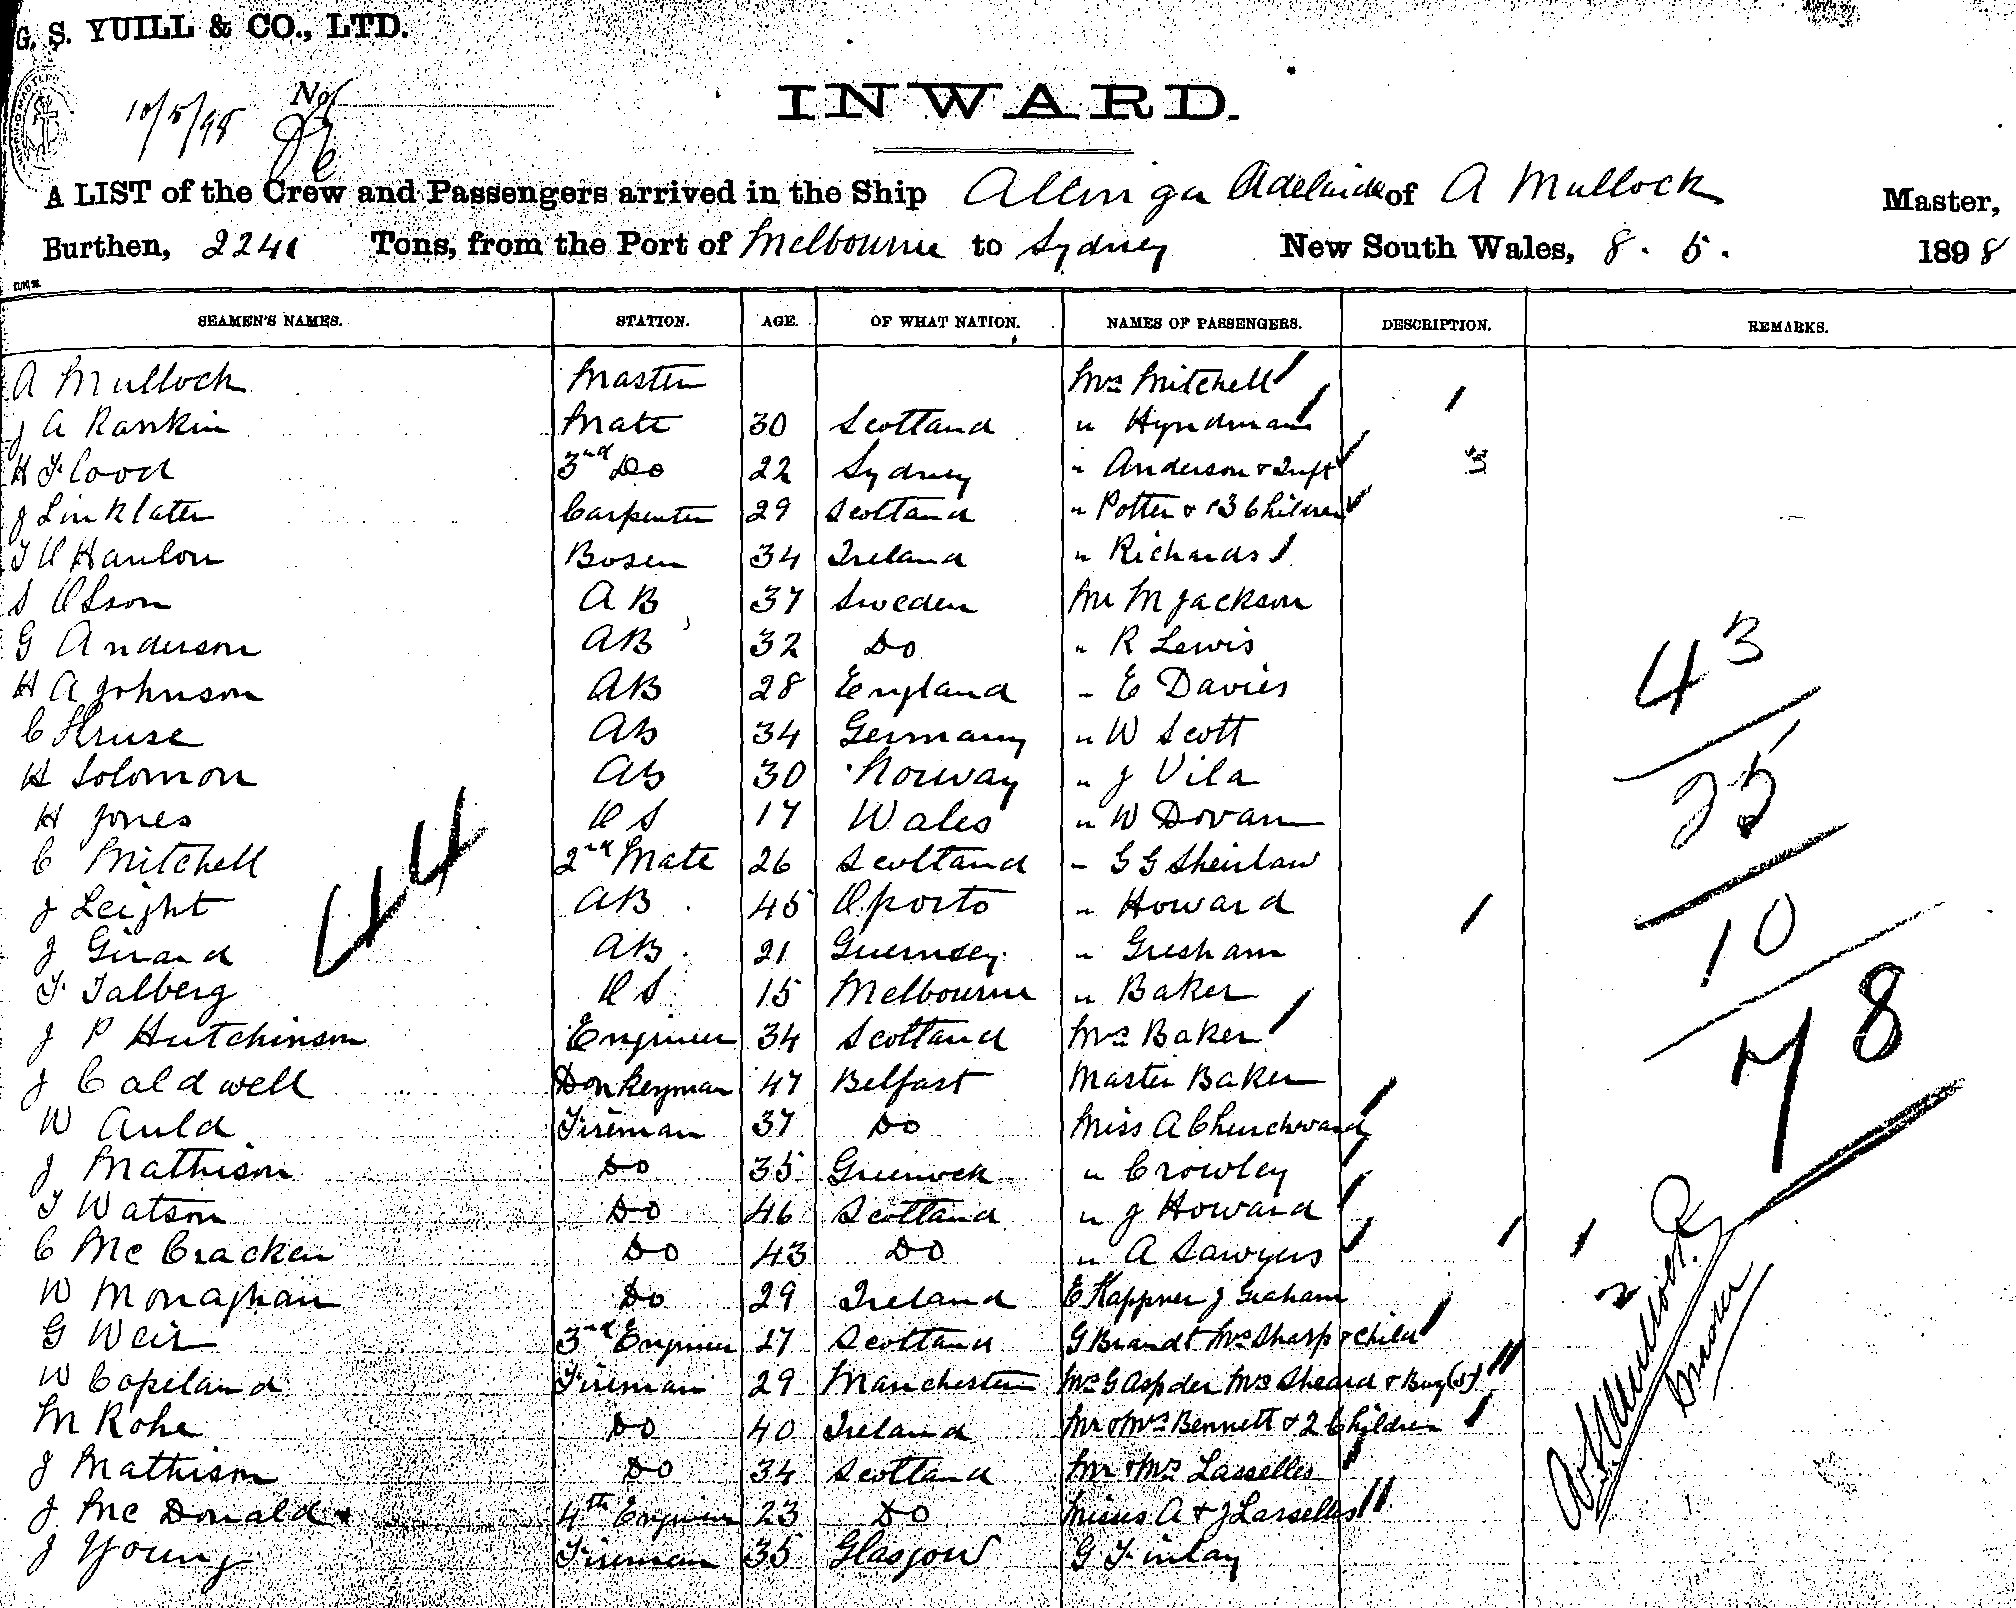 G. S. YUILL & CO., LTD.
10/5/98 No
INWARD.
A LIST of the Crew and Passengers arrived in the Ship Allinga Adelaide of A Mullock Master,
Burthen, 2241 Tons, from the Port of Melbourne to Sydney New South Wales, 8 . 5 . 1898
SEAMEN'S NAMES. STATION. AGE. OF WHAT NATION. NAMES OF PASSENGERS. DESCRIPTION. REMARKS.
A Mullock Master Mrs Mitchell
J A Rankin Mate 30 Scotland " Hyndman
H Flood 3rd Do 22 Sydney " Anderson &
J Linklater Carpenter 29 Scotland " Potter & 3 Children
T O Hanlon Bosen 34 Ireland " Richards
S Olson A B 37 Sweden Mr M Jackson
G Anderson AB 32 Do " R Lewis
H A Johnson AB 28 England " E Davies
C Kruse AB 34 Germany " W Scott
H Solomon AB 30 Norway " J Vila
H Jones O S 17 Wales " W Dovan
C Mitchell 2nd Mate 26 Scotland " G G Sheirlaw
J Leight AB 45 Oporto " Howard
J Girard AB 21 Guernsey " Gresham
F Talberg O S 15 Melbourne " Baker
J P Hutchinson Engineer 34 Scotland Mrs Baker
J Caldwell Donkeyman 47 Belfast Master Baker
W Auld Fireman 37 Do Miss A Churchward
J Mathison Do 35 Greenock " Crowley
T Watson Do 46 Scotland " J Howard
C McCracken Do 43 Do " A Sawyers
W Monaghan Do 29 Ireland E Kappner J Graham
G Weir 3rd Engineer 27 Scotland G Brandt Mrs Sharp & child
W Copeland Fireman 29 Manchester Mrs G Aspder Mrs Sheard &
M Rohe Do 40 Ireland Mr & Mrs Bennett & 2 Children
J Mathison Do 34 Scotland Mr & Mrs Lasselles
J McDonald 4th Engineer 23 Do Misses A & J Lasselles
J Young Fireman 35 Glasgow G Finlay
44
43
25
10
78
A Mullock
Master